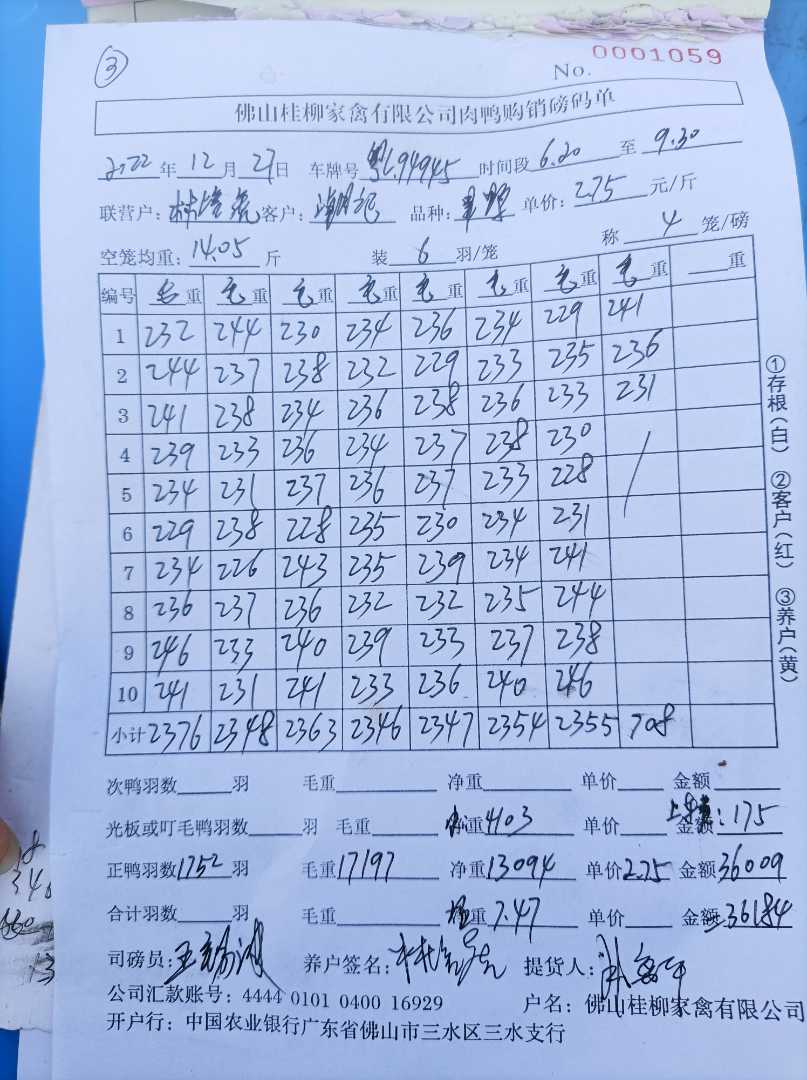 ③
No. 0001059
佛山桂柳家禽有限公司肉鸭购销磅码单
2022年12月27日 车牌号粤L94945 时间段6.20至9.30
联营户: 客户: 品种: 单价:2.75元/斤
空笼均重:14.05斤 装6羽/笼 称4笼/磅
编号 毛重 毛重 毛重 毛重 毛重 毛重 毛重 毛重 重
1 232 244 230 234 236 234 229 241
2 244 237 238 232 229 233 235 236
3 241 238 234 236 238 236 233 231
4 239 233 236 234 237 238 230
5 234 231 237 236 237 233 228
6 229 238 228 235 230 234 231
7 234 226 243 235 239 234 241
8 236 237 236 232 232 235 244
9 246 233 240 239 233 237 238
10 241 231 241 233 236 240 246
小计 2376 2348 2363 2346 2347 2354 2355 708
次鸭羽数 羽 毛重 净重 单价 金额
光板或叮毛鸭羽数 羽 毛重 重4103 单价 :175
正鸭羽数1752羽 毛重17197 净重13094 单价2.75 金额36009
合计羽数 羽 毛重 重7.47 单价 金额36184
司磅员: 养户签名: 提货人:
公司汇款账号: 4444 0101 0400 16929 户名: 佛山桂柳家禽有限公司
开户行: 中国农业银行广东省佛山市三水区三水支行
①存根(白) ②客户(红) ③养户(黄)